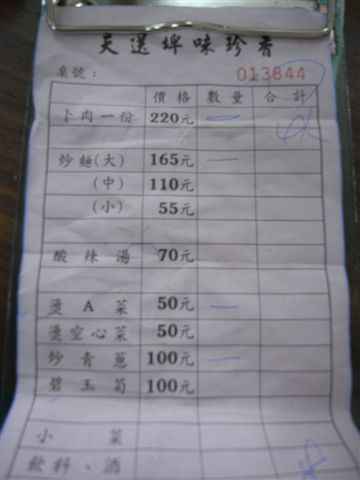 天送埤味珍香
桌號： 013844
價格 數量 合計
卜肉一份 220元 一
炒麵(大) 165元 一
(中) 110元
(小) 55元
酸辣湯 70元
燙A菜 50元 一
燙空心菜 50元
炒青蔥 100元 一
碧玉筍 100元
小菜
飲料、酒